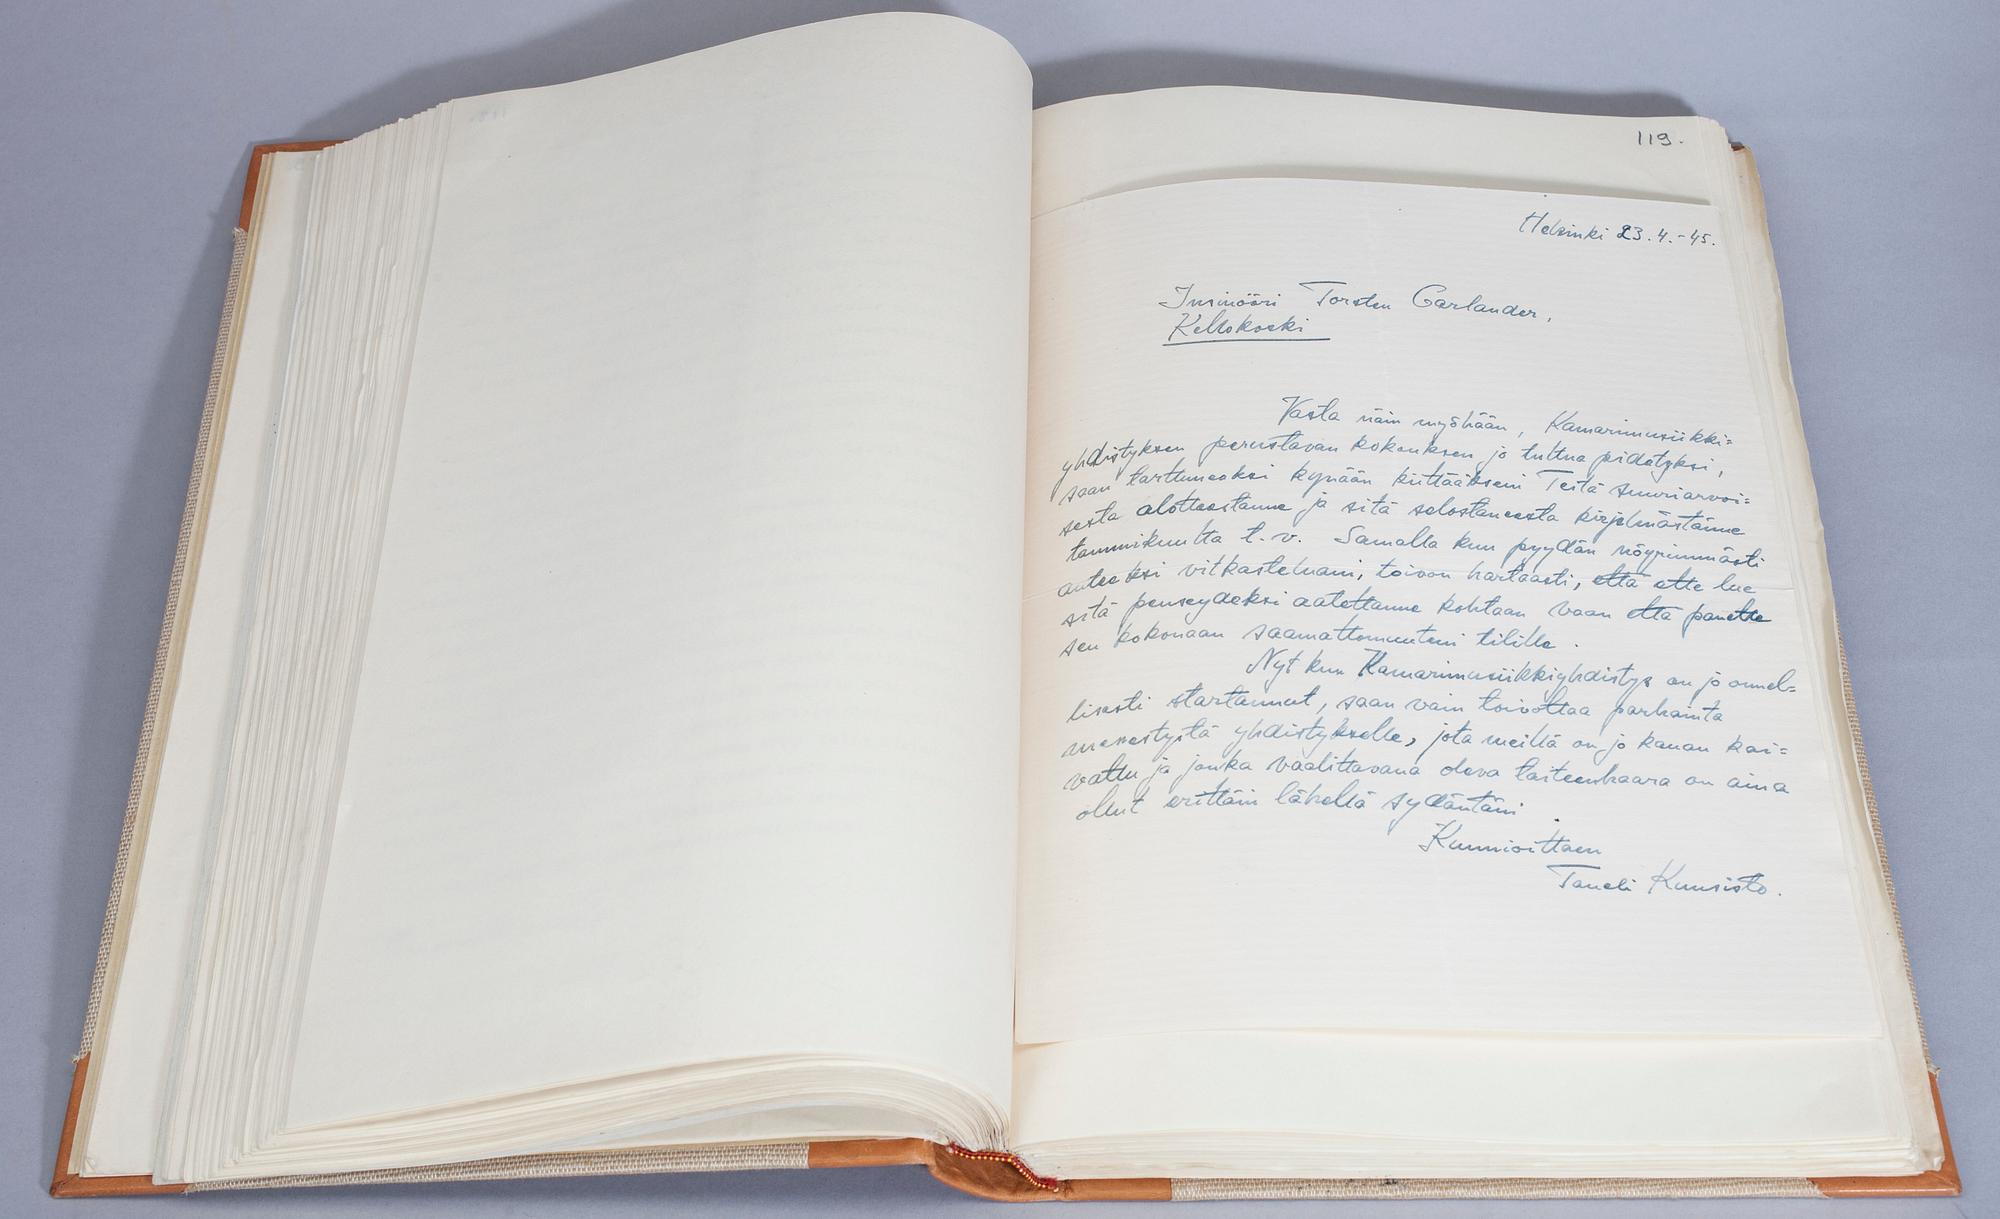 119.
Helsinki 23.4.-45.
Insinööri Torsten Carlander,
Kellokoski
Vasta näin myöhään, Kamarimusiikki=
yhdistyksen perustavan kokouksen jo tultua pidetyksi,
saan tartuneeksi kynään kiittääkseni Teitä suuriarvoi=
sesta alotteestanne ja sitä selostaneesta kirjelmästänne
tammikuulta t.v. Samalla kun pyydän nöyrimmästi
anteeksi vitkasteluani, toivon hartaasti, että ette lue
sitä penseydeksi aatettanne kohtaan vaan että panette
sen kokonaan saamattomuuteni tilille.
Nyt kun Kamarimusiikkiyhdistys on jo onnel=
lisesti startannut, saan vain toivottaa parhainta
menestystä yhdistykselle, jota meillä on jo kauan kai=
vattu ja jonka vaalittavana oleva taiteenhaara on aina
ollut erittäin lähellä sydäntäni
Kunnioittaen
Taneli Kuusisto.